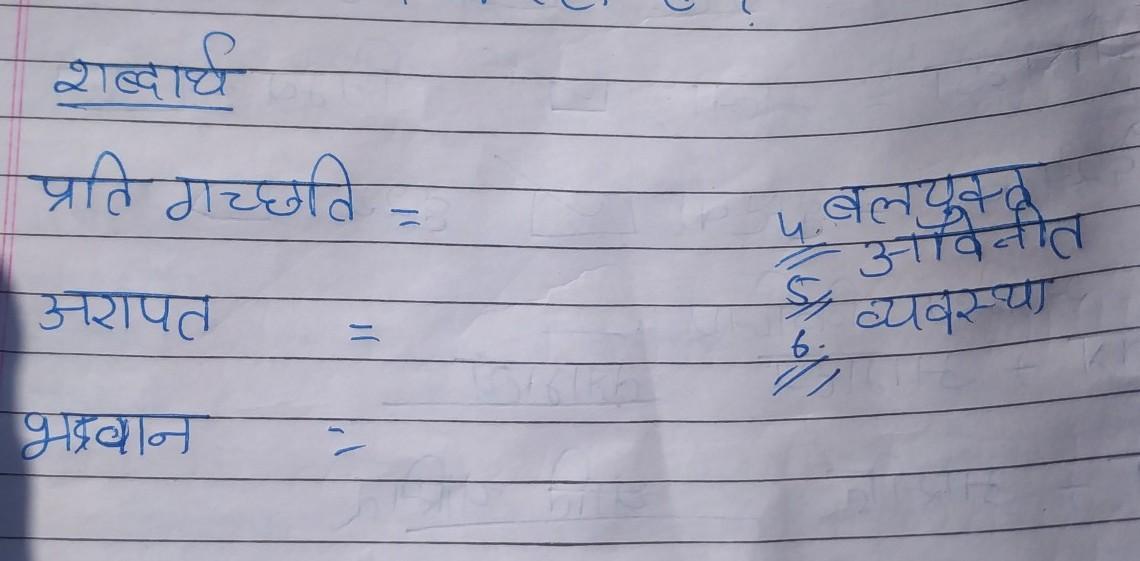 शब्दार्थ
प्रति गच्छति =
4. बलयुक्त
5. अविनीत
अशपत =
6. व्यवस्था
=